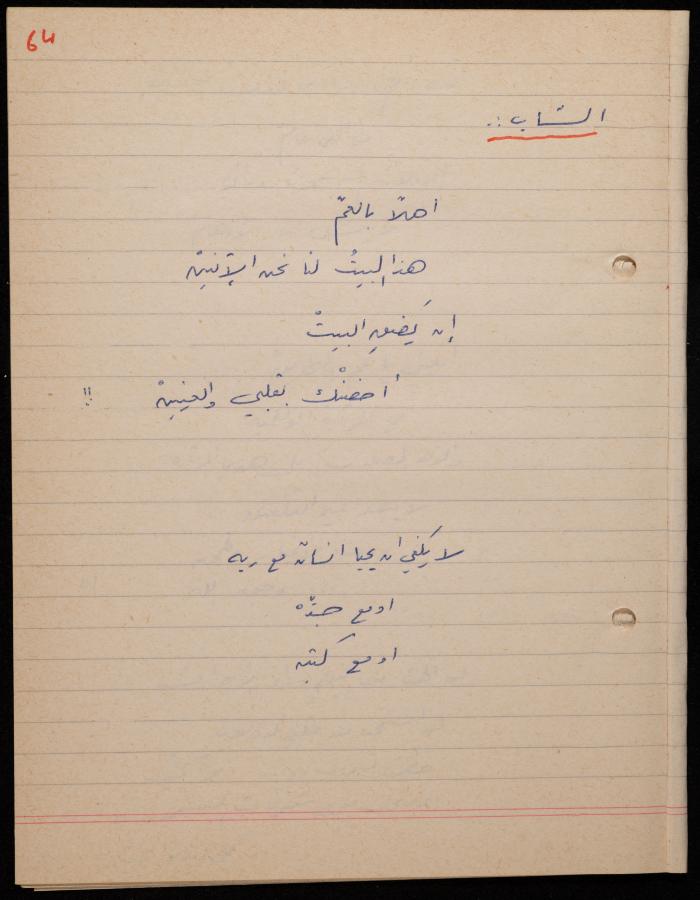 64
الشاب :.
أهلاً بالعمّ
هذا البيتُ لنا نحن الإثنينْ
إن يَضقِ البيتْ
أحضنْك بقلبي والعينينْ !!
لا يكفي ان يحيا انسانٌ مع ربه
او مع جدّه
او مع كتبه